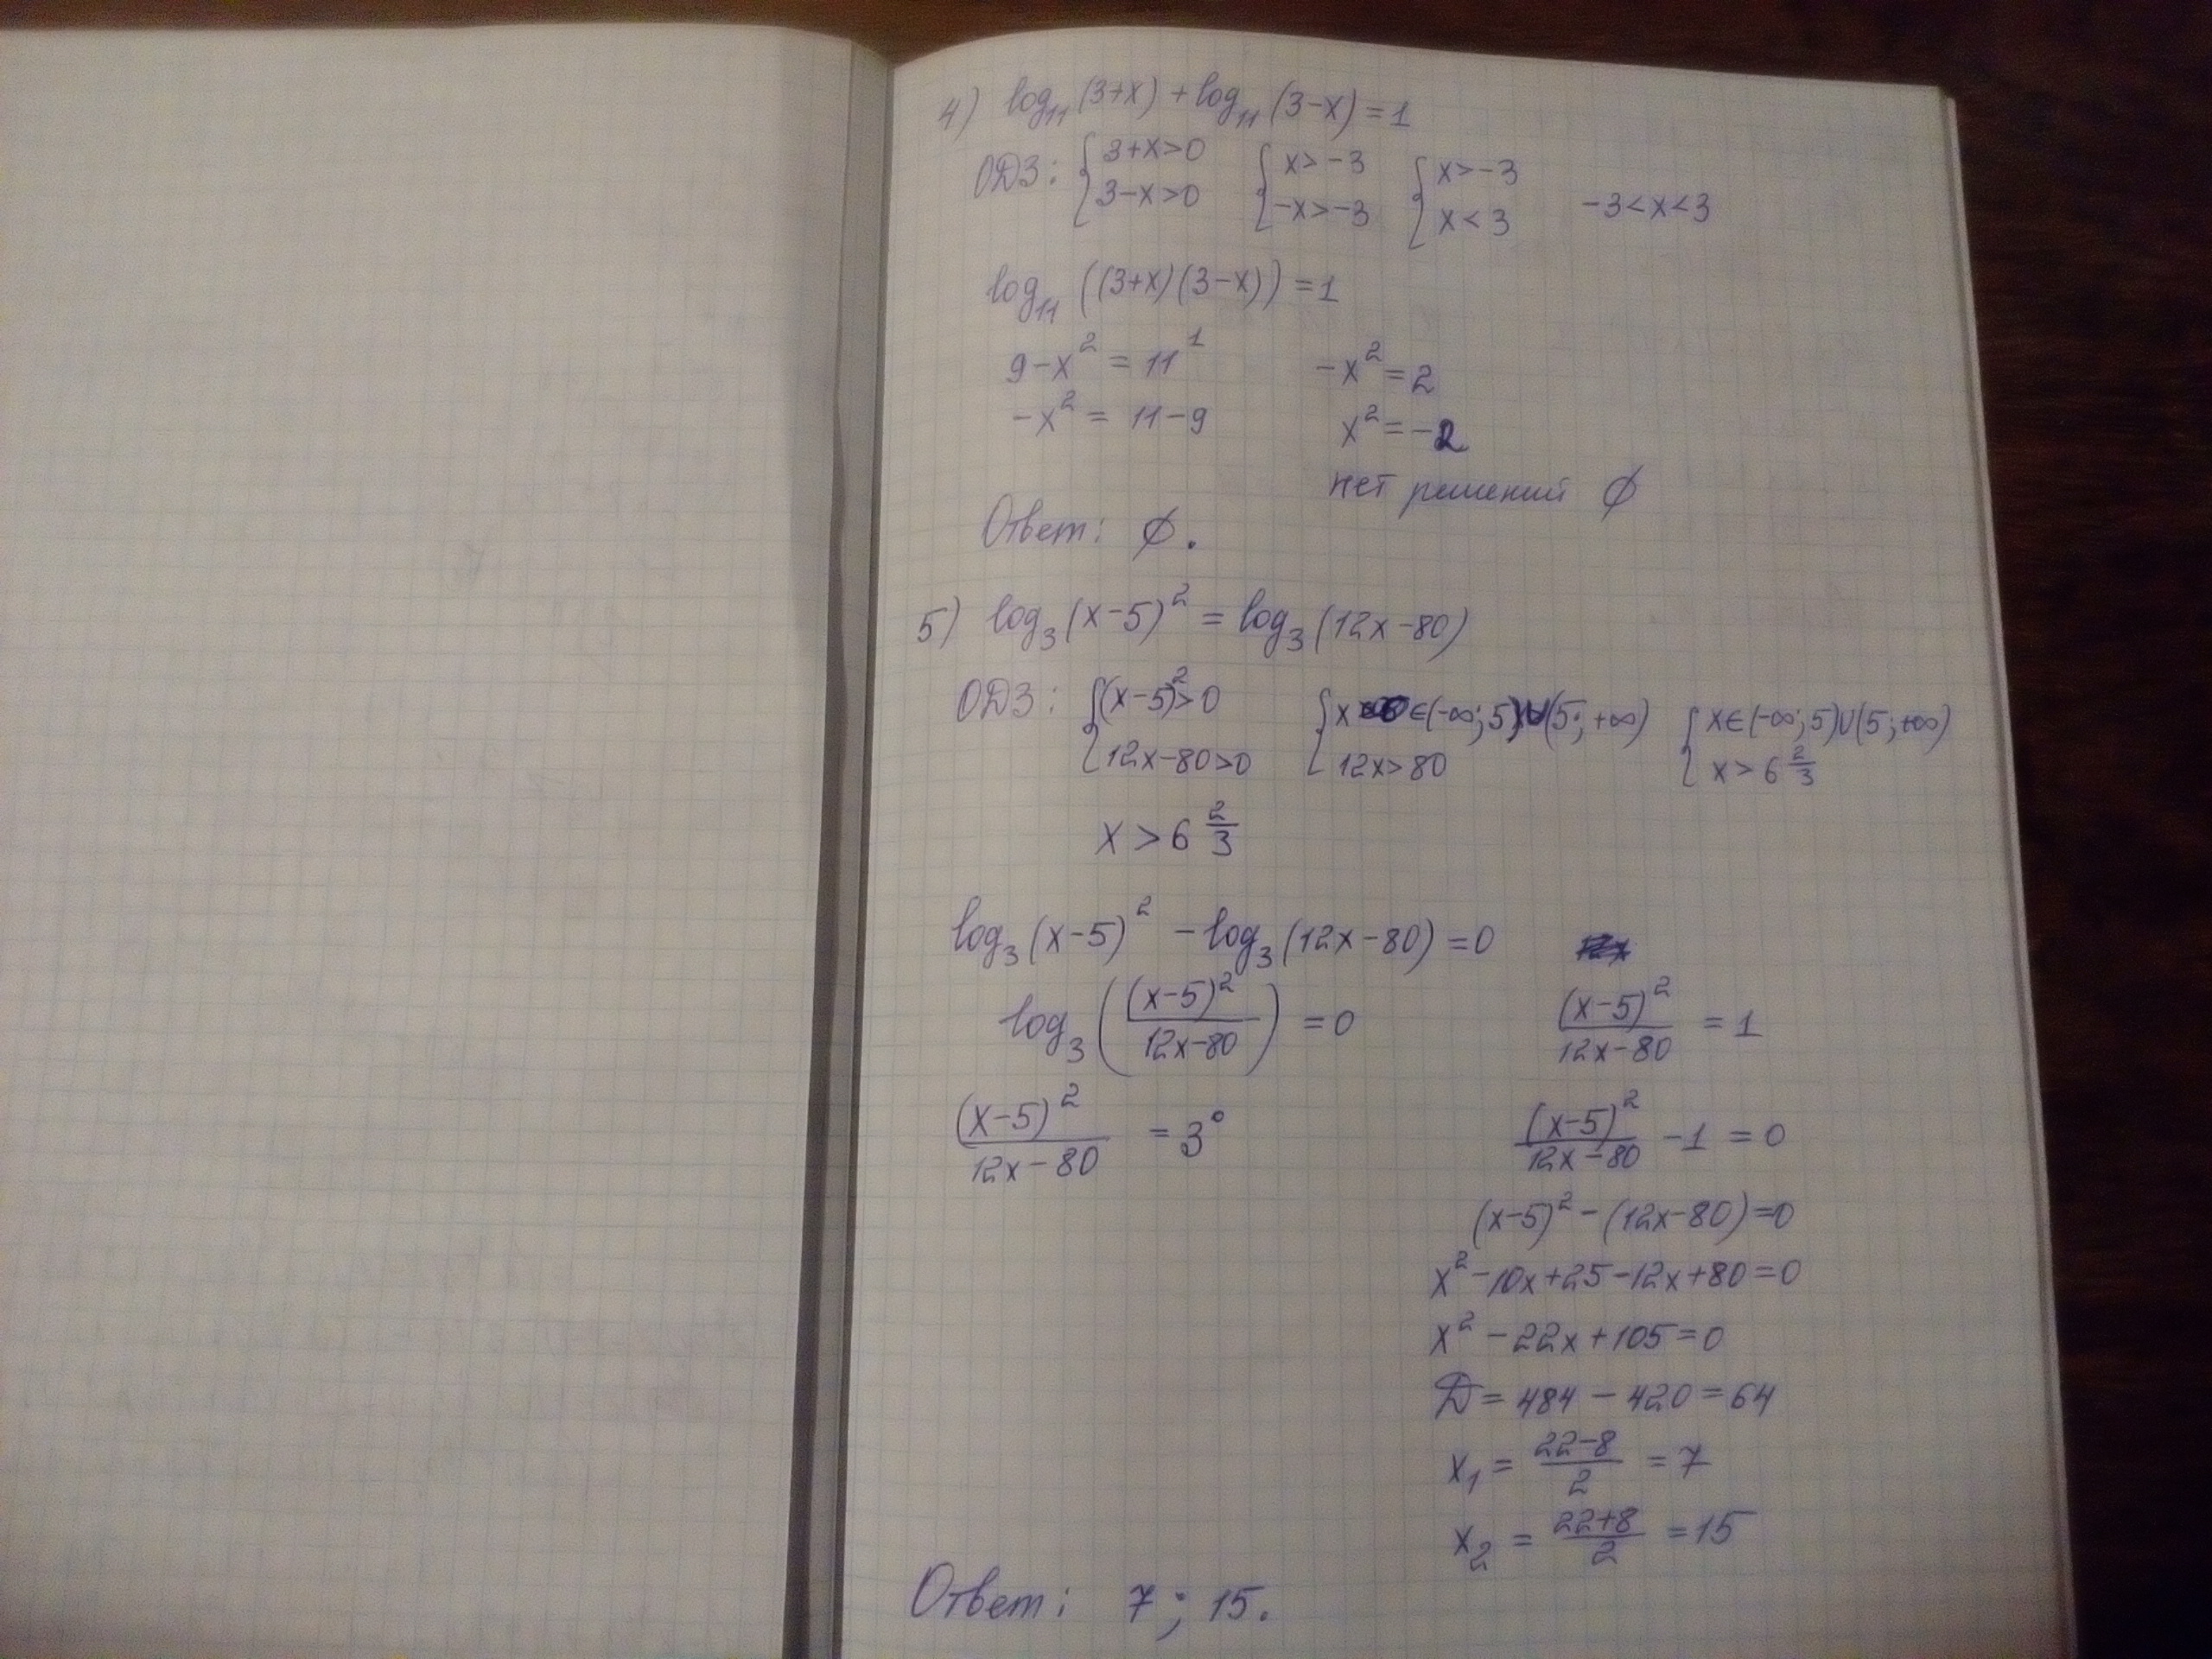 4) log₁₁(3+x) + log₁₁(3-x) = 1
ОДЗ: { 3+x>0 { x>-3 { x>-3
{ 3-x>0 { -x>-3 { x<3 -3<x<3
log₁₁((3+x)(3-x)) = 1
9-x² = 11¹ -x² = 2
-x² = 11-9 x² = -2
нет решений ∅
Ответ: ∅.
5) log₃(x-5)² = log₃(12x-80)
ОДЗ: { (x-5)²>0 { x ∈(-∞; 5)∪(5; +∞) { x∈(-∞; 5)∪(5; +∞)
{ 12x-80>0 { 12x>80 { x > 6 2/3
x > 6 2/3
log₃(x-5)² - log₃(12x-80) = 0
log₃((x-5)²/(12x-80)) = 0 (x-5)²/(12x-80) = 1
(x-5)²/(12x-80) = 3⁰ (x-5)²/(12x-80) - 1 = 0
(x-5)² - (12x-80) = 0
x² - 10x + 25 - 12x + 80 = 0
x² - 22x + 105 = 0
D = 484 - 420 = 64
x₁ = (22-8)/2 = 7
x₂ = (22+8)/2 = 15
Ответ: 7; 15.